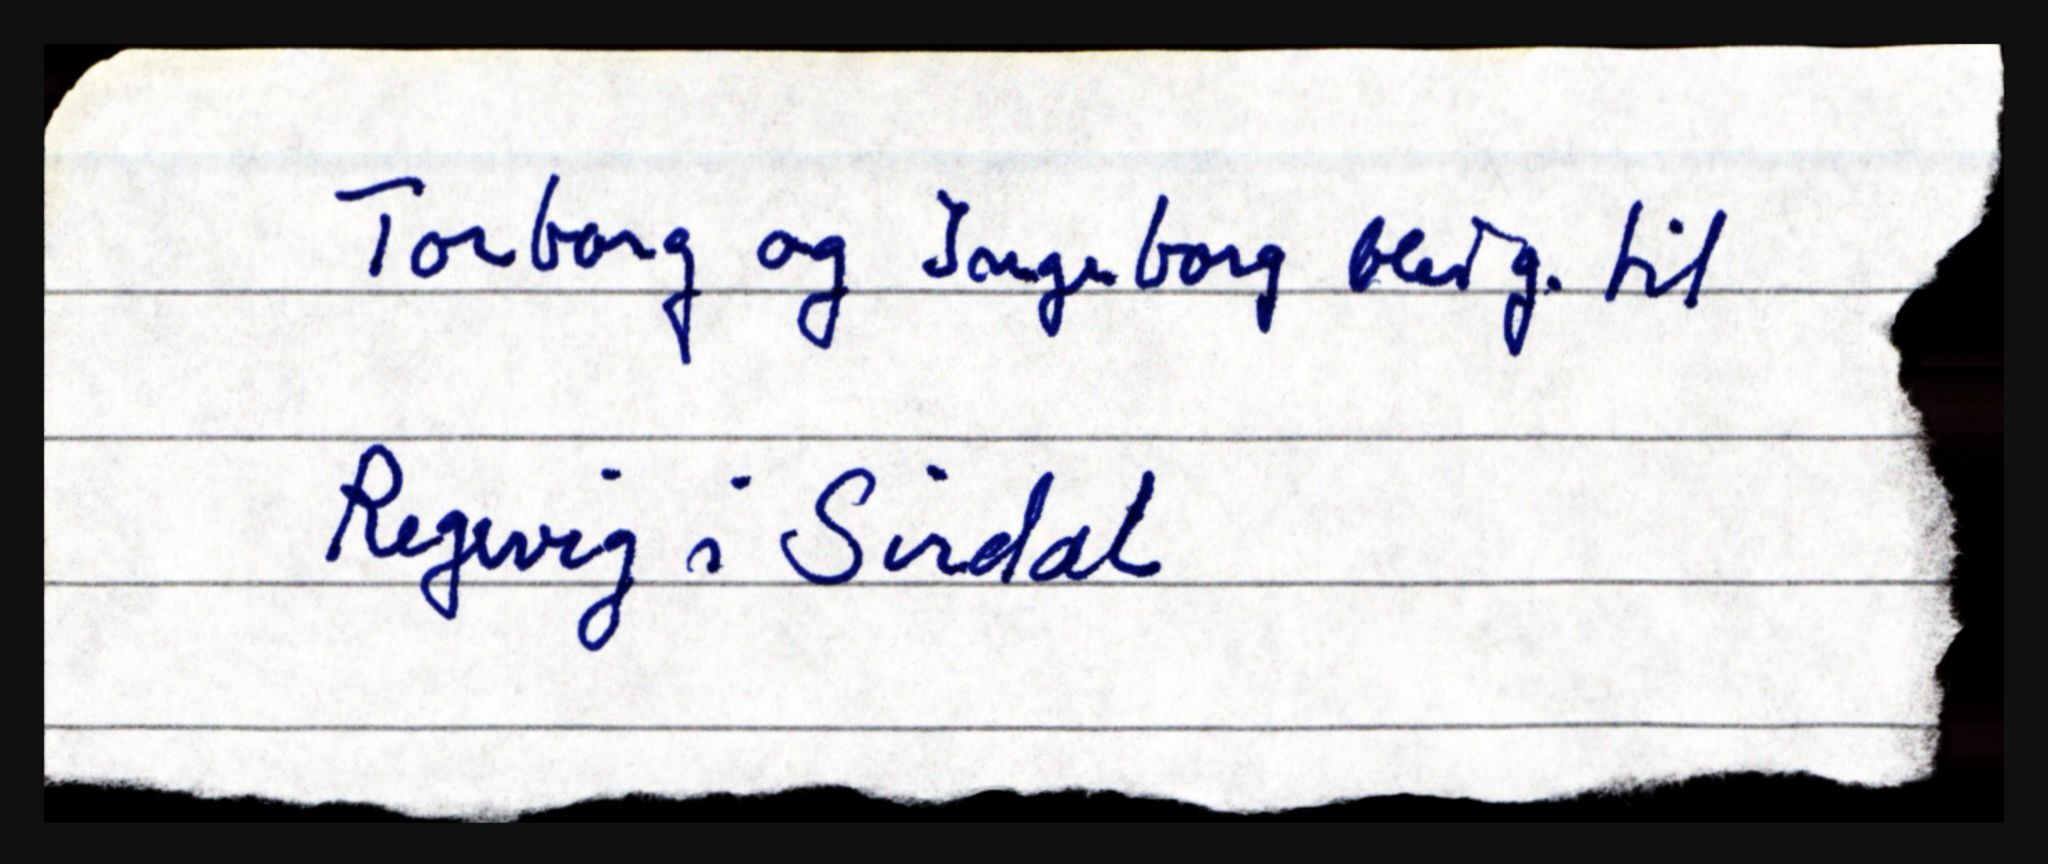 Torborg og Ingeborg til
Regevig i Sirdal